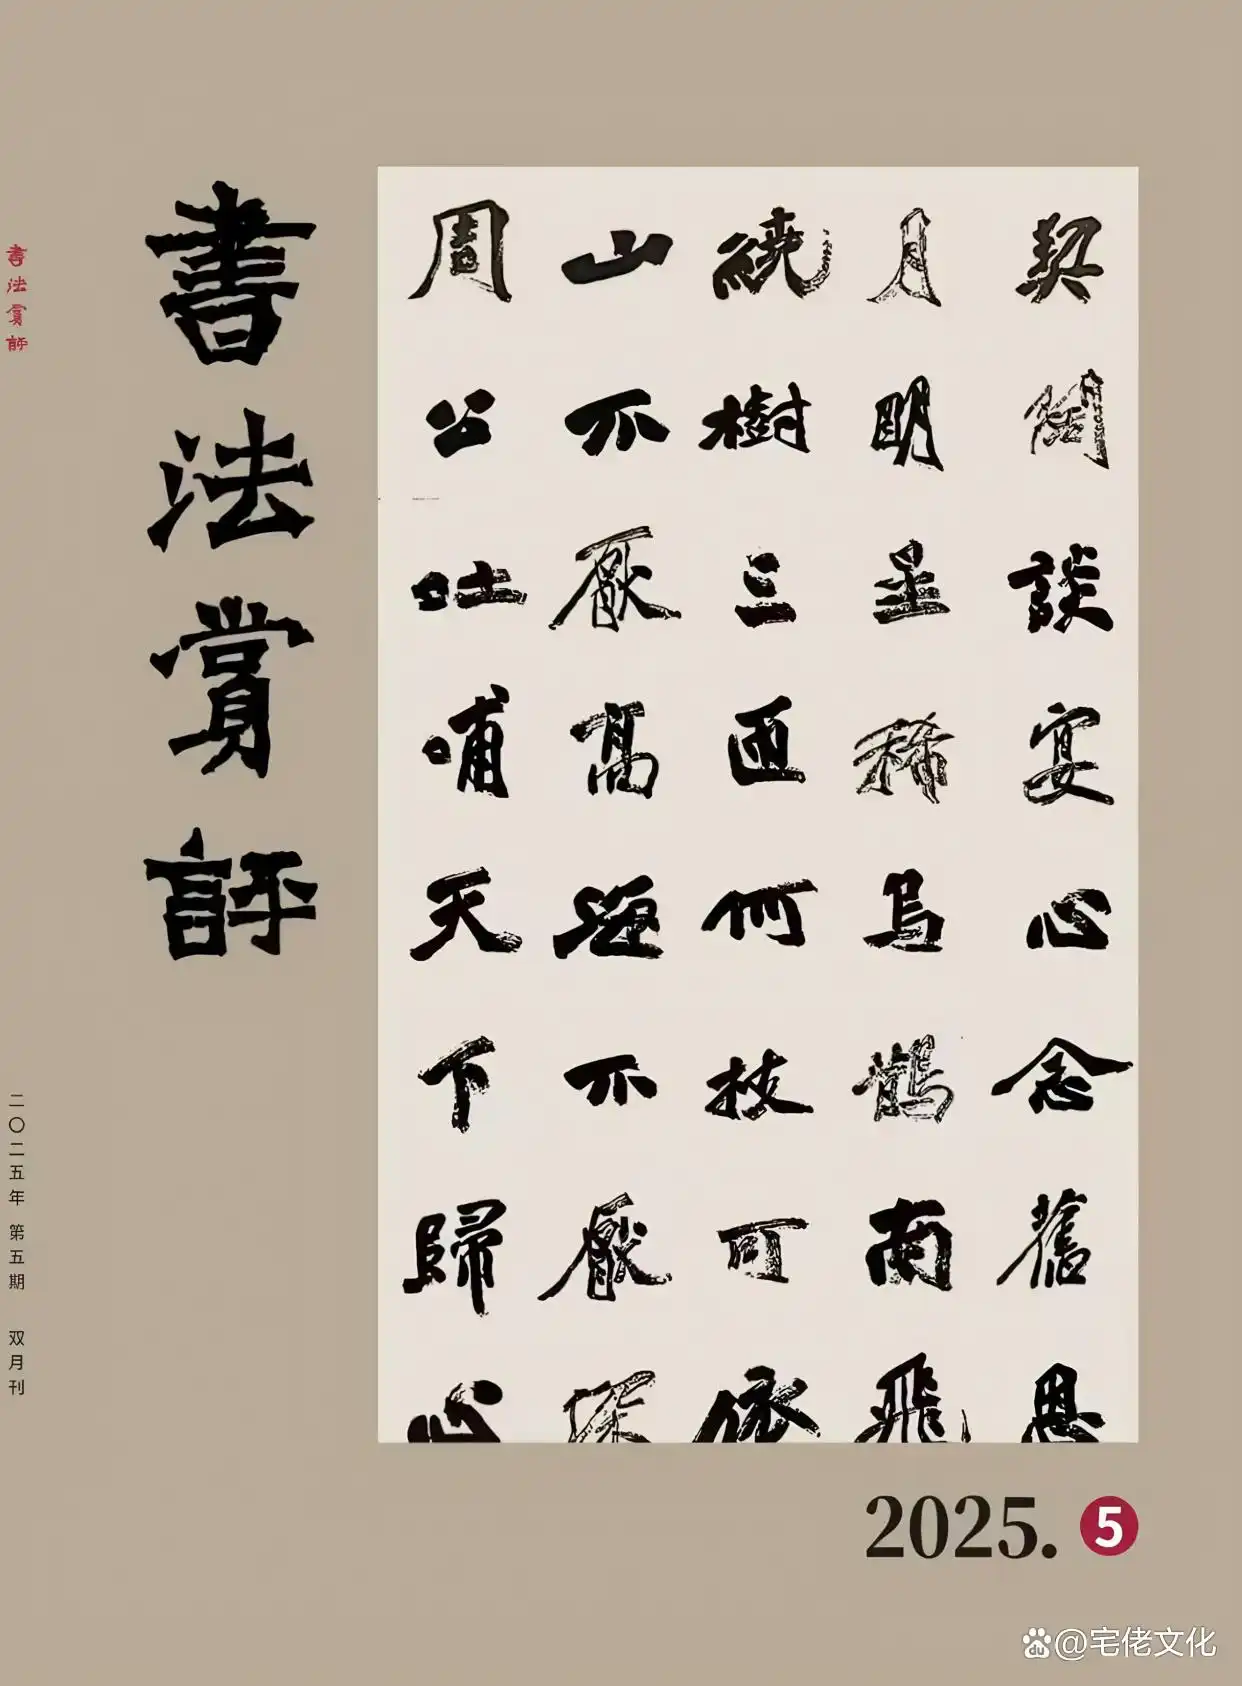 書法賞評
二〇二五年 第五期 双月刊
書法賞評
契闊談宴心念舊恩
月明星稀烏鵲南飛
繞樹三匝何枝可依
山不厭高海不厭深
周公吐哺天下歸心
2025. 5
du @宅佬文化